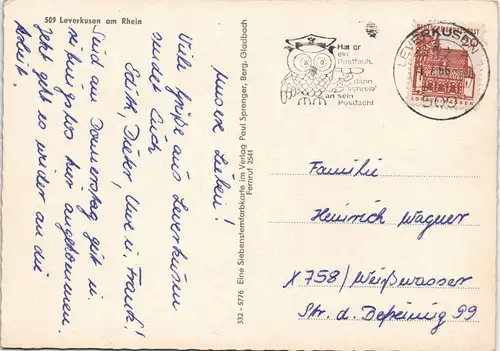 509 Leverkusen am Rhein
Unsere Lieben!
Viele Grüße aus Leverkusen
sendet Euch
Edith, Dieter, Uwe u. Frank!
Sind am Donnerstag gut u.
reibungslos hier angekommen.
Jetzt geht es wieder an die
Arbeit.
332 - 5776 Eine Siebensternfarbkarte im Verlag Paul Sprenger, Berg. Gladbach
Fernruf 2541
Hat er
ein
Postfach,
dann
schreib'
an sein
Postfach!
LEVERKUSEN
509
Familie
Heinrich Wagner
X 758/ Weißwasser
Str. d. Befreiung 99